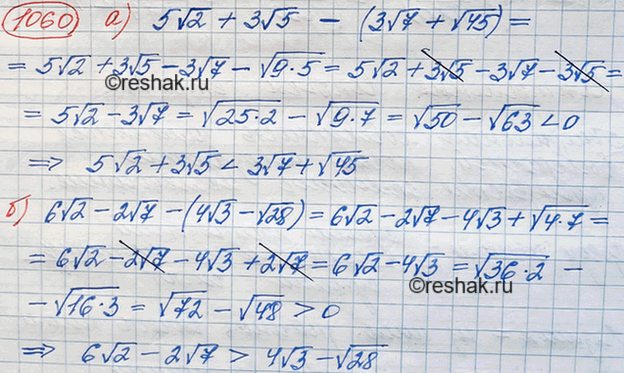 1060 а) 5√2 + 3√5 − (3√7 + √45) =
= 5√2 + 3√5 − 3√7 − √9·5 = 5√2 + 3√5 − 3√7 − 3√5 =
©reshak.ru
= 5√2 − 3√7 = √25·2 − √9·7 = √50 − √63 < 0
⇒ 5√2 + 3√5 < 3√7 + √45
б) 6√2 − 2√7 − (4√3 − √28) = 6√2 − 2√7 − 4√3 + √4·7 =
= 6√2 − 2√7 − 4√3 + 2√7 = 6√2 − 4√3 = √36·2 −
©reshak.ru
− √16·3 = √72 − √48 > 0
⇒ 6√2 − 2√7 > 4√3 − √28